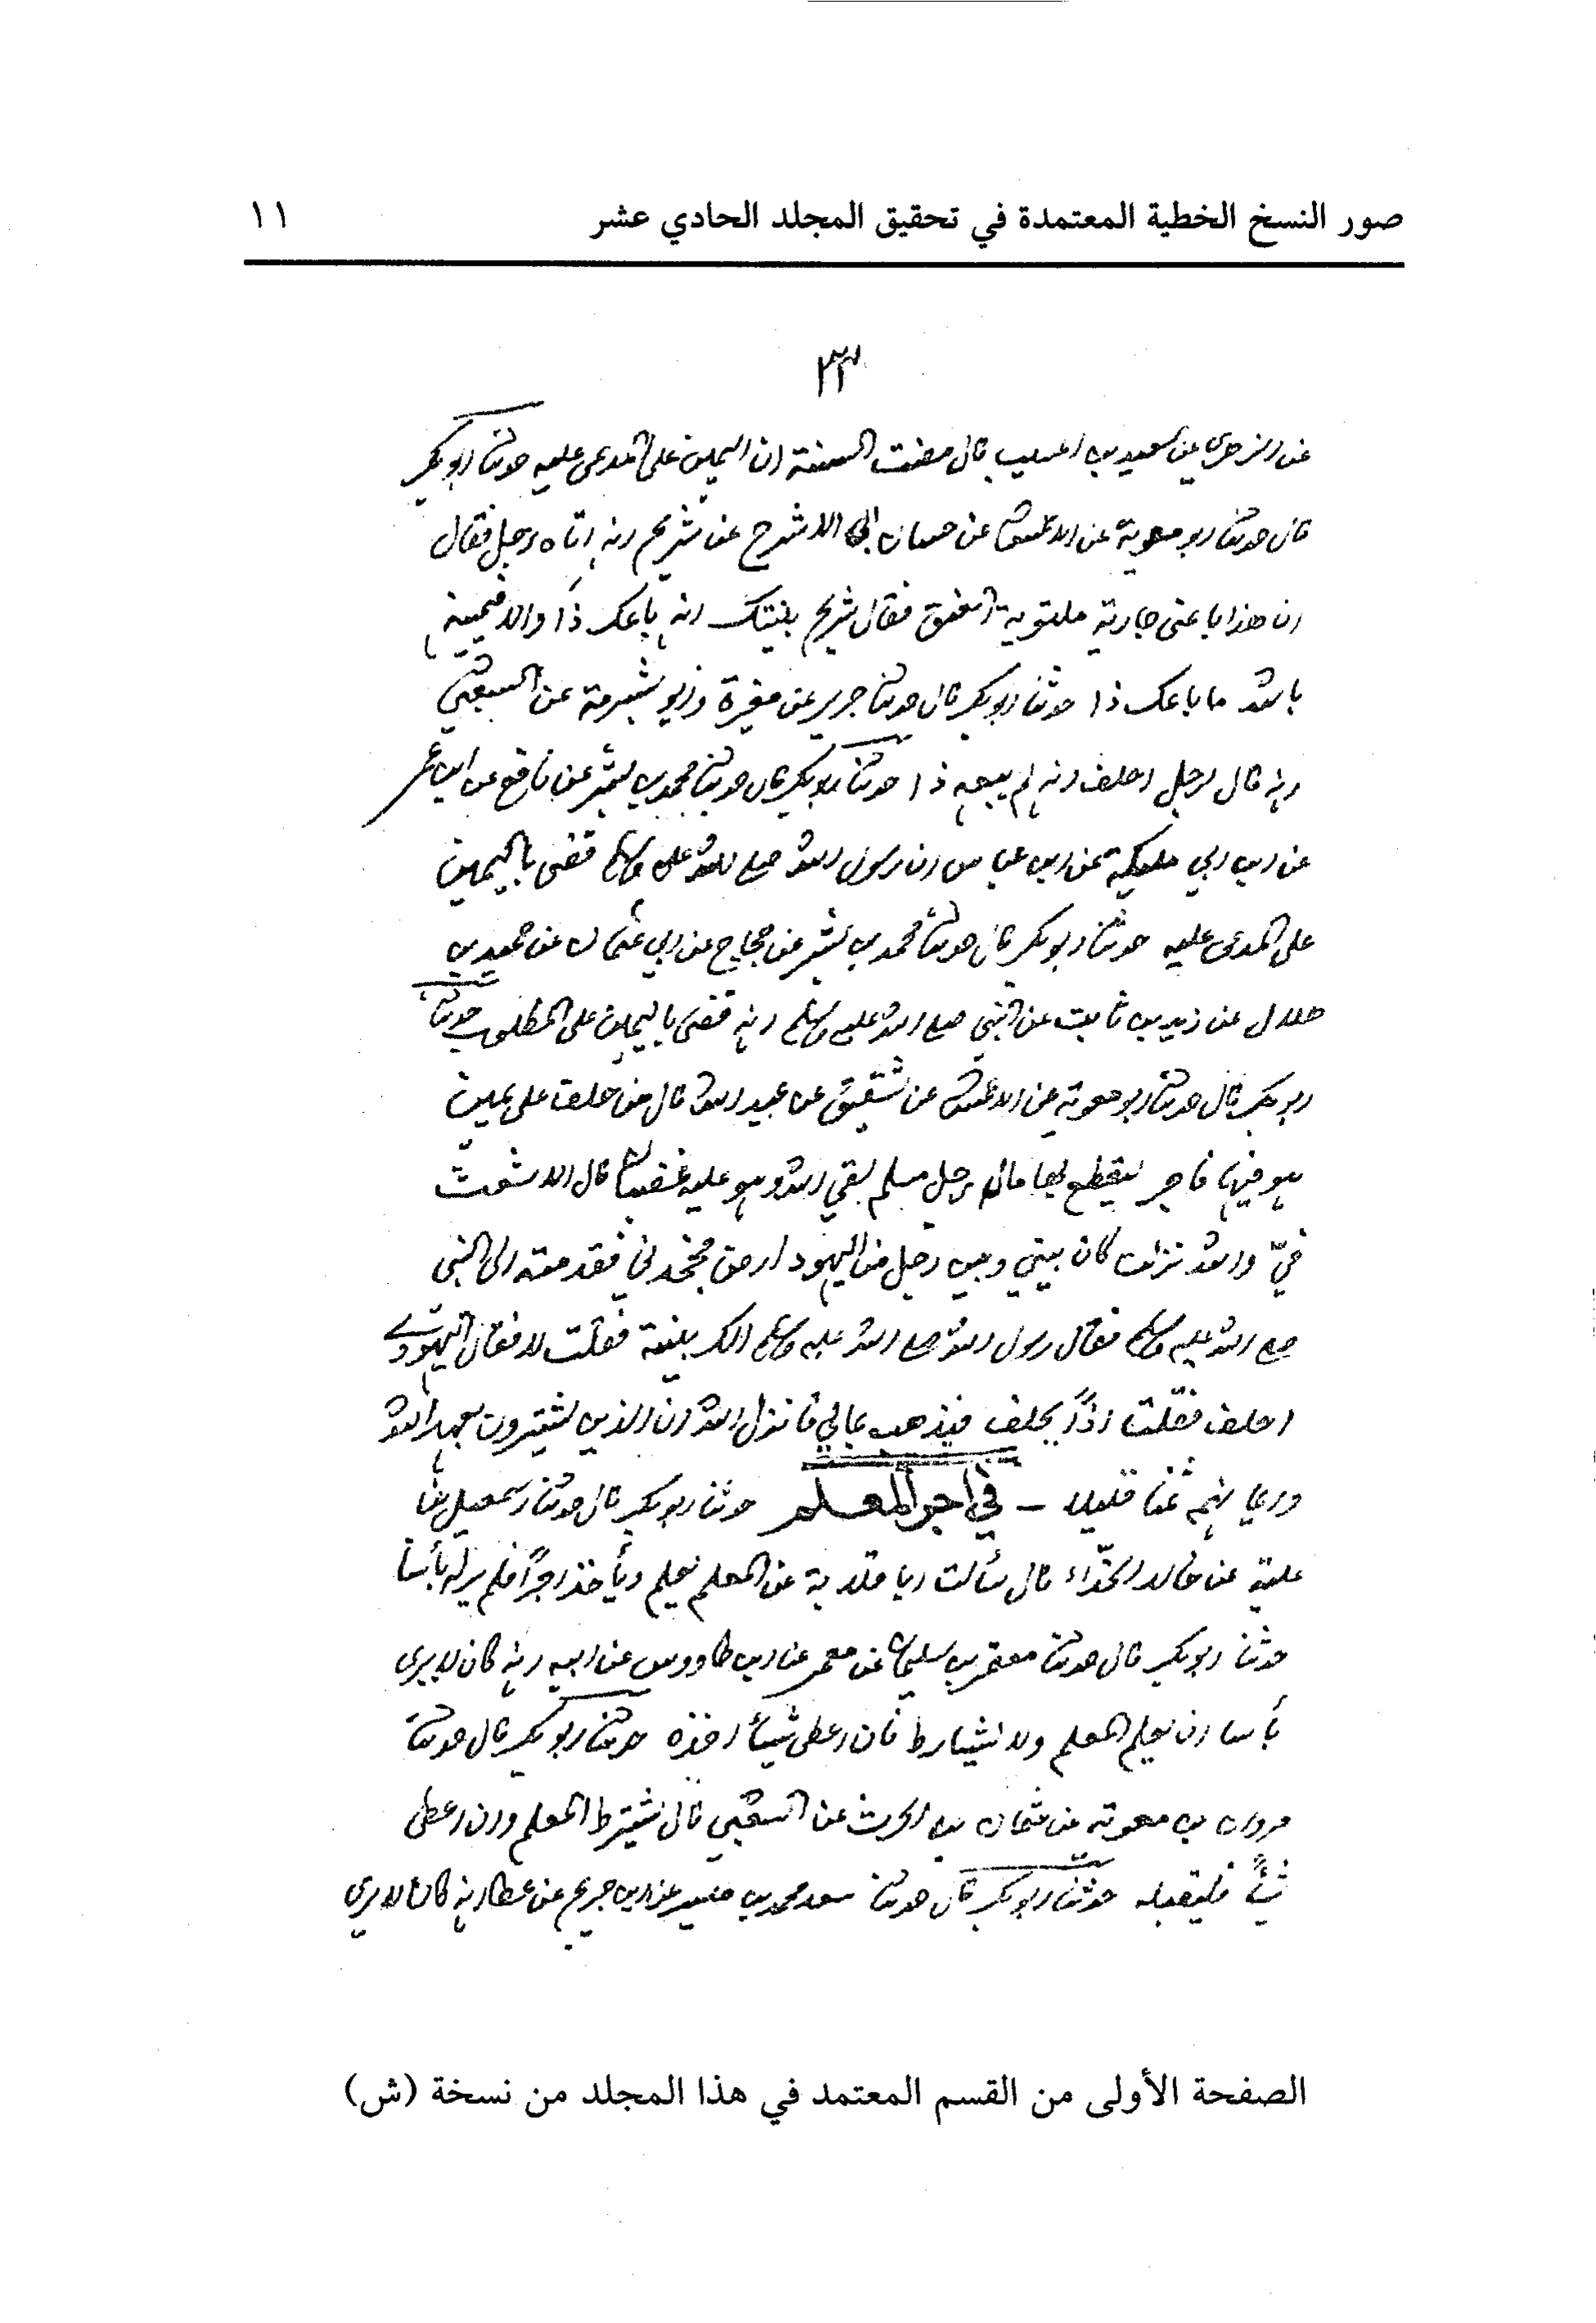 صور النسخ الخطية المعتمدة في تحقيق المجلد الحادي عشر ١١
٣٣
عن الزهري عن سعيد بن المسيب قال مضت السنة ان اليمين على المدعى عليه حدثنا ابو بكر
قال حدثنا ابو معوية عن الاعمش عن حسان ابي الاشرح عن شريح انه اتاه رجل فقال
ان هذا باعنى جارية ملتوية العنق فقال شريح بينتك انه باعك ذا والا فيمينه
بالله ما باعك ذا حدثنا ابو بكر قال حدثنا جرير عن مغيرة وابو شبرمة عن الشعبي
انه قال لرجل احلف انه لم يبعه ذا حدثنا ابو بكر قال حدثنا محمد بن بشر عن نافع عن ابن عمر
عن ابن ابي مليكة عن ابن عباس ان رسول الله صلى الله عليه وسلم قضى باليمين
على المدعى عليه حدثنا ابو بكر قال حدثنا محمد بن بشر عن حجاج عن ابي عثمان عن حميد بن
هلال عن زيد بن ثابت عن النبي صلى الله عليه وسلم انه قضى باليمين على المطلوب حدثنا
ابو بكر قال حدثنا ابو معوية عن الاعمش عن شقيق عن عبد الله قال من حلف على يمين
هو فيها فاجر ليقطع بها مال رجل مسلم لقي الله وهو عليه غضبان قال الاشعث
فيّ والله نزلت كان بيني وبين رجل من اليهود ارض فجحدني فقدمته الى النبى
صلى الله عليه وسلم فقال رسول الله صلى الله عليه وسلم الك بينة فقلت لا فقال لليهودي
احلف فقلت اذًا يحلف فيذهب بمالي فانزل الله ان الذين يشترون بعهد الله
وايمانهم ثمنا قليلا – في اجر المعلم حدثنا ابو بكر قال حدثنا اسمعيل بن
علية عن خالد الحذّاء قال سألت ابا قلابة عن المعلم يعلم ويأخذ اجرًا فلم ير له بأسا
حدثنا ابو بكر قال حدثنا معتمر بن سليمان عن معمر عن ابن طاووس عن ابيه انه كان لا يرى
بأسا ان يعلم المعلم ولا يشارط فان اعطى شيئا اخذه حدثنا ابو بكر قال حدثنا
مروان بن معوية عن عثمان بن الحرث عن الشعبي قال لا يشترط المعلم وان اعطى
شيئًا فليقبله حدثنا ابو بكر قال حدثنا سعد محمد بن ميسر عن ابن جريج عن عطا انه كان لا يرى
الصفحة الأولى من القسم المعتمد في هذا المجلد من نسخة (ش)